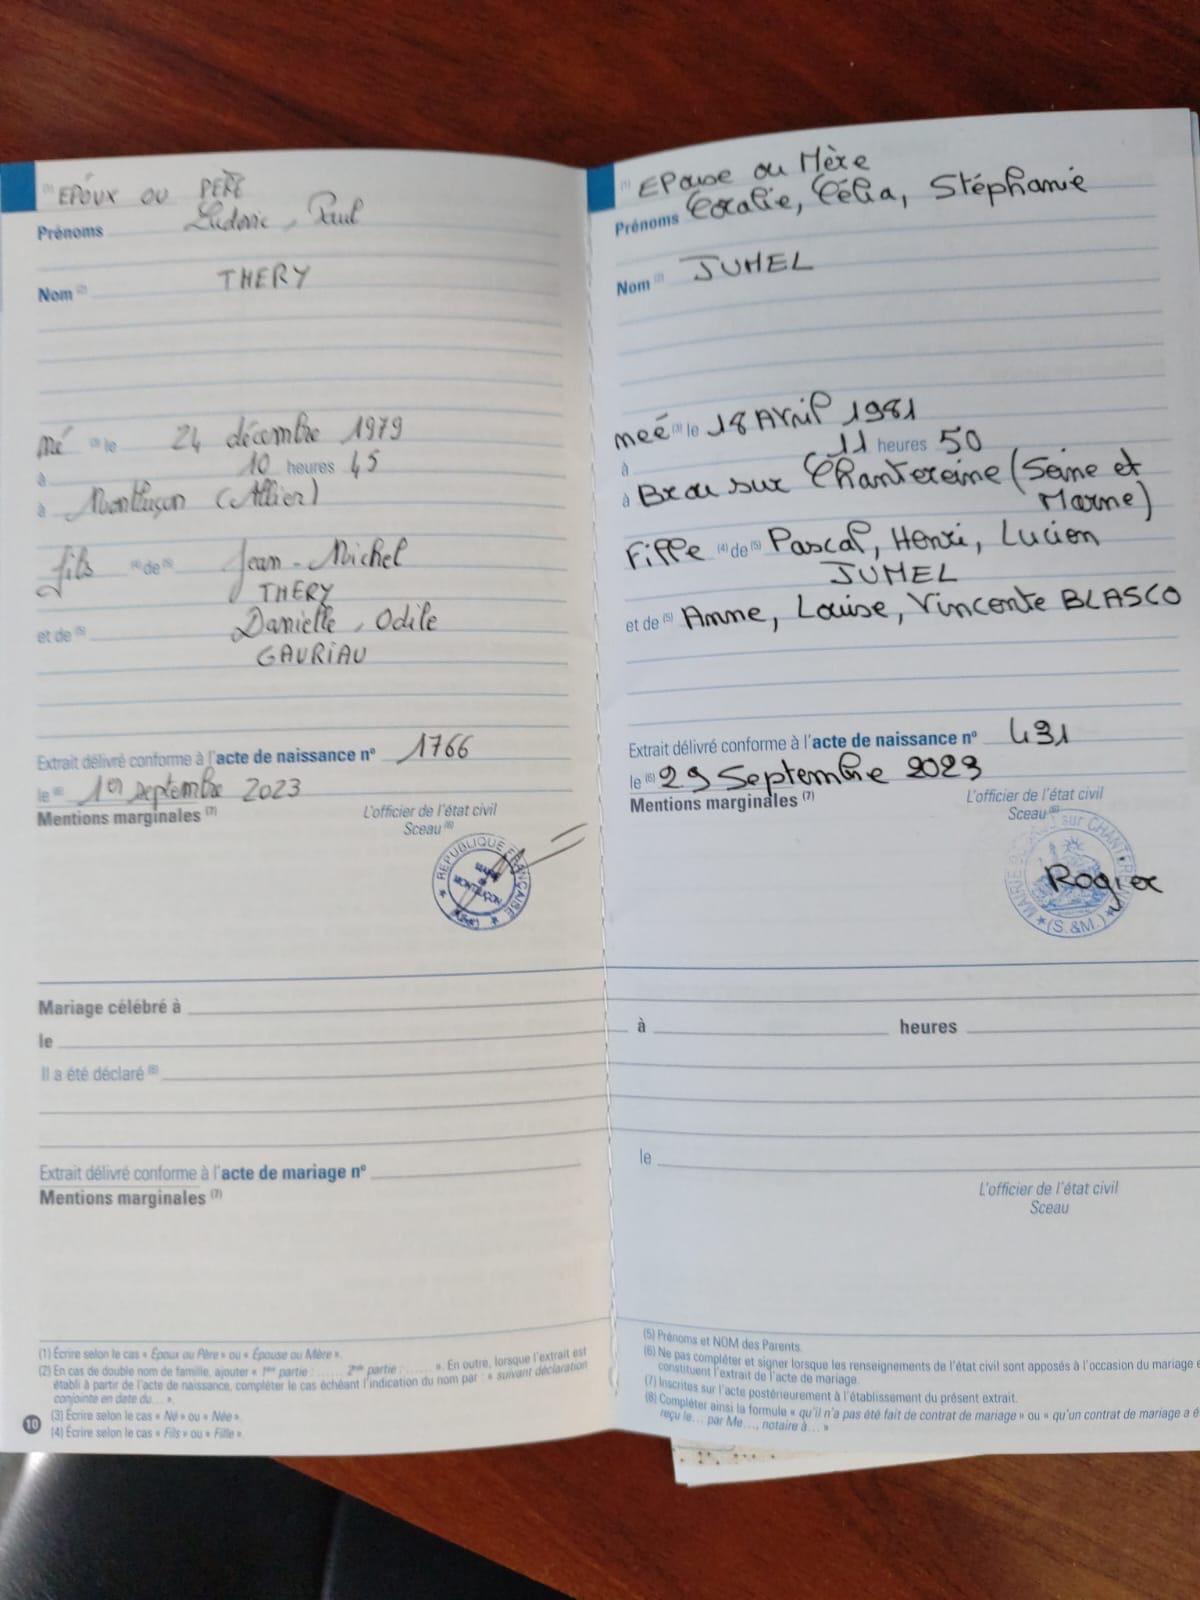 (1) EPOUX OU PERE
Prénoms Ludovic, Paul
Nom (2) THERY
né (3) le 24 décembre 1979
à 10 heures 45
à Montluçon (Allier)
fils (4) de (5) Jean-Michel
THERY
et de (5) Danielle, Odile
GAURIAU
Extrait délivré conforme à l'acte de naissance nº 1766
le (6) 1er septembre 2023
Mentions marginales (7)
L'officier de l'état civil
Sceau (6)
RÉPUBLIQUE FRANÇAISE
MAIRIE
de
MONTLUÇON
Mariage célébré à
le
Il a été déclaré (8)
Extrait délivré conforme à l'acte de mariage nº
Mentions marginales (7)
(1) Écrire selon le cas « Époux ou Père » ou « Épouse ou Mère ».
(2) En cas de double nom de famille, ajouter « 1ère partie : ...... 2ème partie : ...... ». En outre, lorsque l'extrait est
établi à partir de l'acte de naissance, compléter le cas échéant l'indication du nom par : « suivant déclaration
conjointe en date du... ».
(3) Écrire selon le cas « Né » ou « Née ».
(4) Écrire selon le cas « Fils » ou « Fille ».
10
(1) EPouse ou Mère
Prénoms Coralie, Célia, Stéphanie
Nom (2) JUMEL
née (3) le 18 Avril 1981
à 11 heures 50
à Brou sur Chantereine (Seine et
Marne)
Fille (4) de (5) Pascal, Henri, Lucien
JUMEL
et de (5) Anne, Louise, Vincente BLASCO
Extrait délivré conforme à l'acte de naissance nº 431
le (6) 29 Septembre 2023
Mentions marginales (7)
L'officier de l'état civil
Sceau (6)
MAIRIE sur CHANTEREINE
(S.&M.)
Rogier
à heures
le
L'officier de l'état civil
Sceau
(5) Prénoms et NOM des Parents.
(6) Ne pas compléter et signer lorsque les renseignements de l'état civil sont apposés à l'occasion du mariage e
constituent l'extrait de l'acte de mariage.
(7) Inscrites sur l'acte postérieurement à l'établissement du présent extrait.
(8) Compléter ainsi la formule « qu'il n'a pas été fait de contrat de mariage » ou « qu'un contrat de mariage a é
reçu le... par Me..., notaire à... »